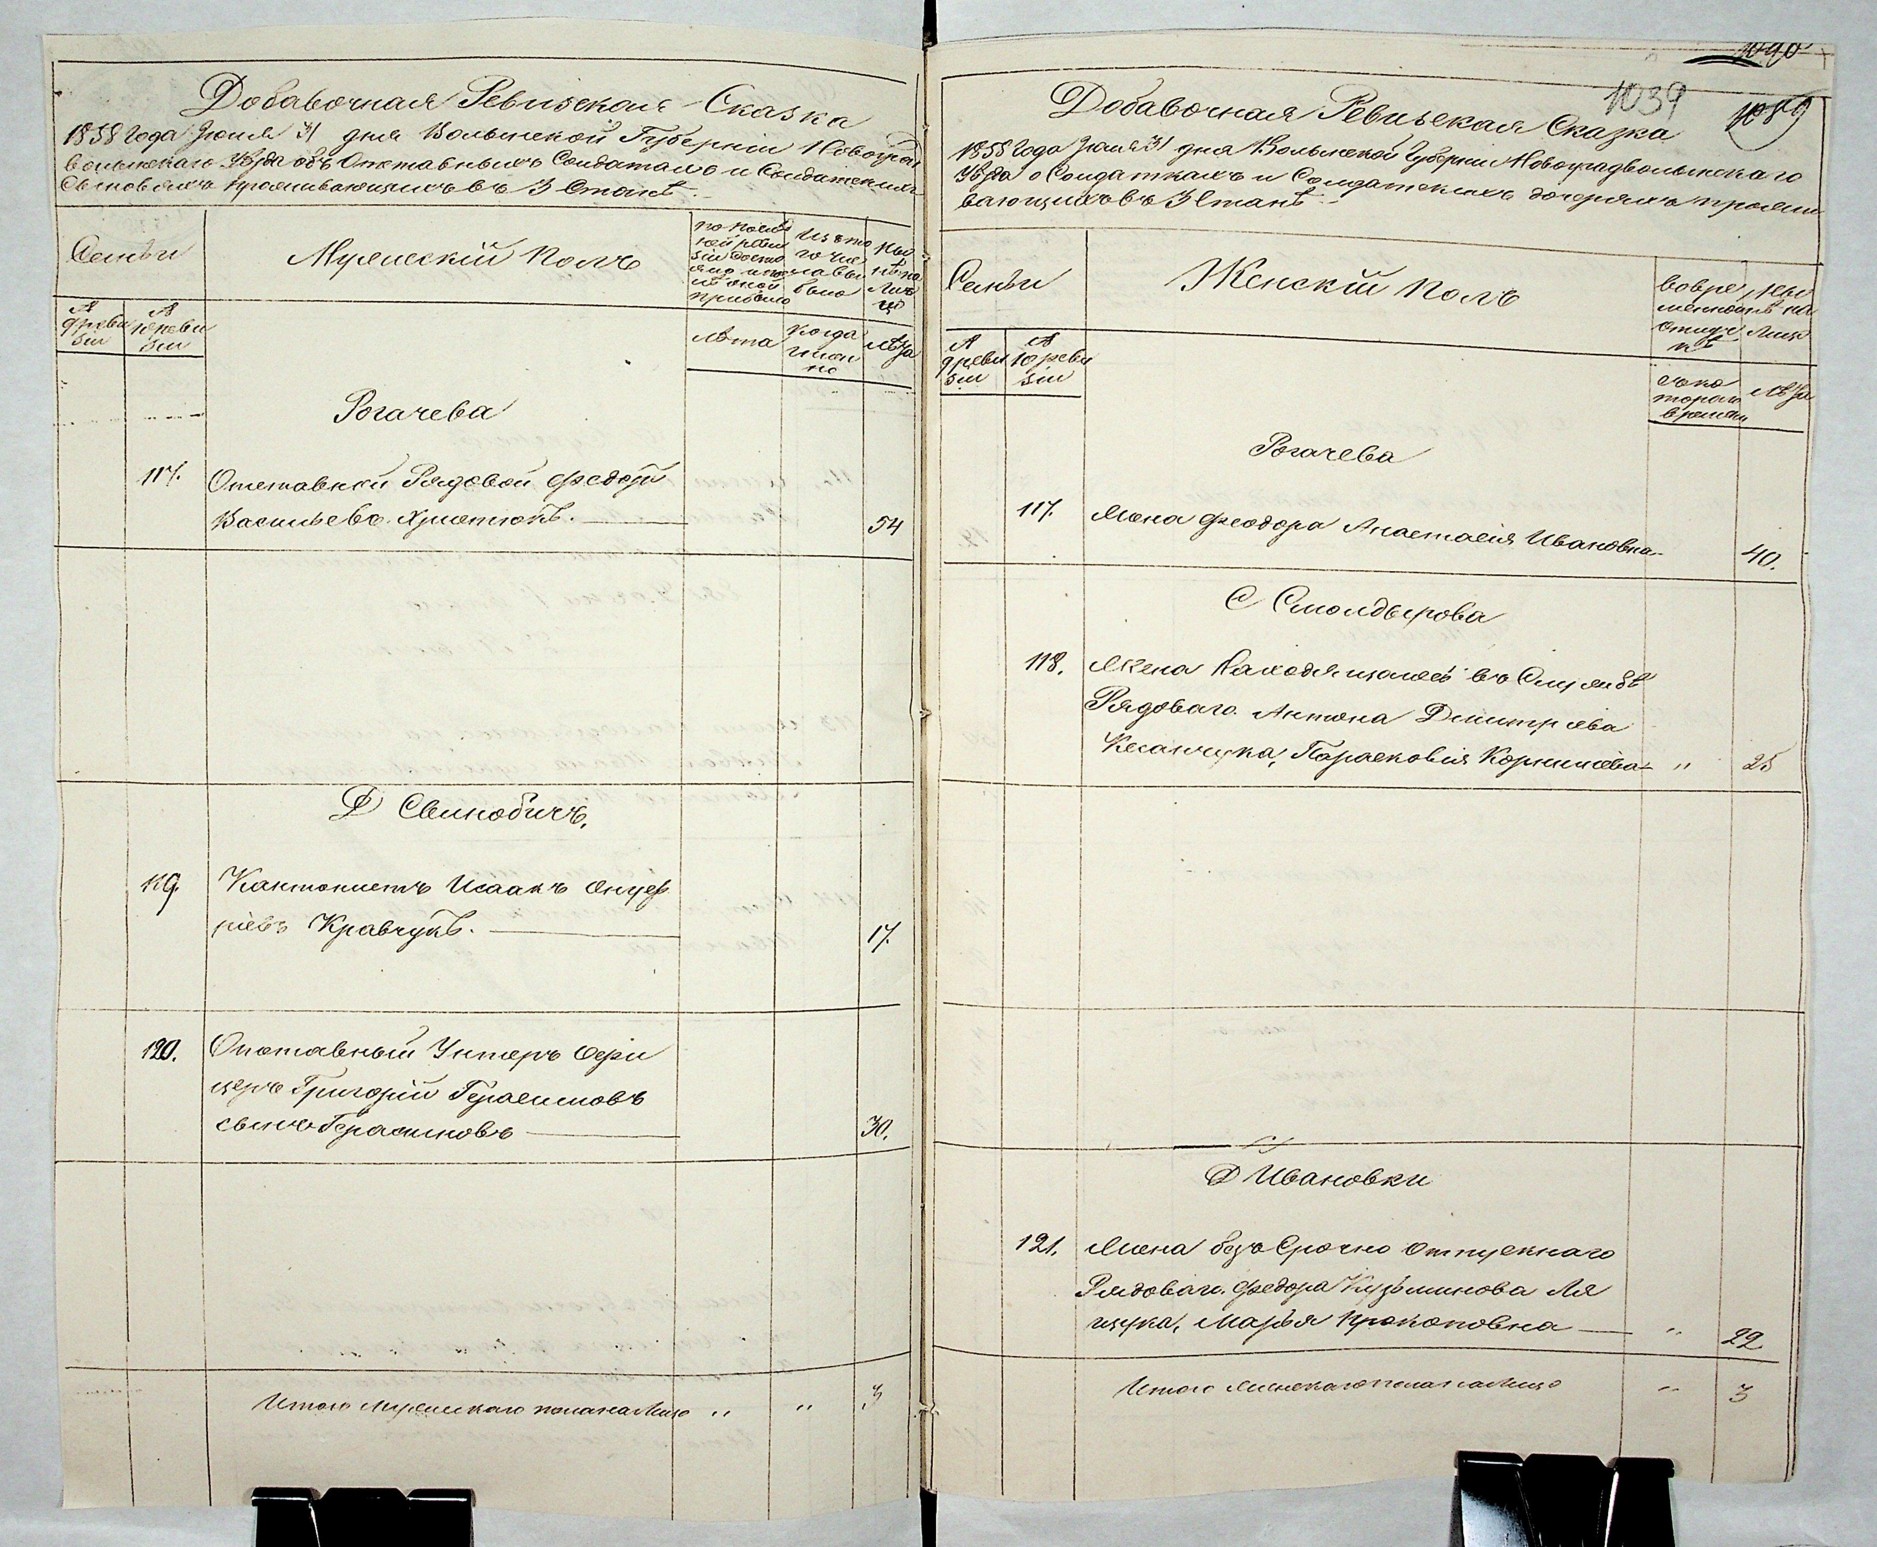 Добавочная Ревизская Сказка
1858 Года Июля 31 дня Волынской Губерніи Новоград
волынскаго Уѣзда объ Отставныхъ Солдатахъ и Солдатскихъ
Сыновьяхъ проживающихъ въ 3 Станѣ
Семьи
Мужескій Полъ
по послѣд
ней реви
зіи состо
яло и по
слѣ оной
прибыло
Изъ то
го чис
ла вы
было
Ны
нѣ на
Ли
цо
№
9 реви
зіи
№
10 реви
зіи
Лѣта
когда
имен
но
Лѣта
Рогачева
117.
Отставной Рядовой Федоръ
Васильевъ Христюкъ.
54
Д Свинобичъ.
119.
Кантонистъ Исаакъ Онуф
ріевъ Кравчукъ.
17.
120.
Отставный Унтеръ Офи
церъ Григорій Герасимовъ
сынъ Герасимовъ
30.
Итого мужескаго пола на Лицо " " 3
1040
1039
1089
Добавочная Ревизская Сказка
1858 Года Июля 31 дня Волынской Губерніи Новоградволынскаго
Уѣзда о Солдаткахъ и Солдатскихъ дочеряхъ прожи
вающихъ въ 3 Станѣ
Семьи
Женскій Полъ
во вре
менной
отлуч
кѣ
Ны
нѣ на
Лицо
№
9 реви
зіи
№
10 реви
зіи
съ ко
тораго
времени
Лѣта
Рогачева
117.
Жена Феодора Анастасія Ивановна
40.
С Смолдырова
118.
Жена Находящагося въ Службѣ
Рядоваго Антона Дмитріева
Парасковія Корнилова " 25
Д Ивановки
121.
Жена безъ Срочно отпускнаго
Рядоваго Федора Кузьминова Ля
щука, Марья Прокоповна " 22
Итого женскаго пола на Лицо " 3